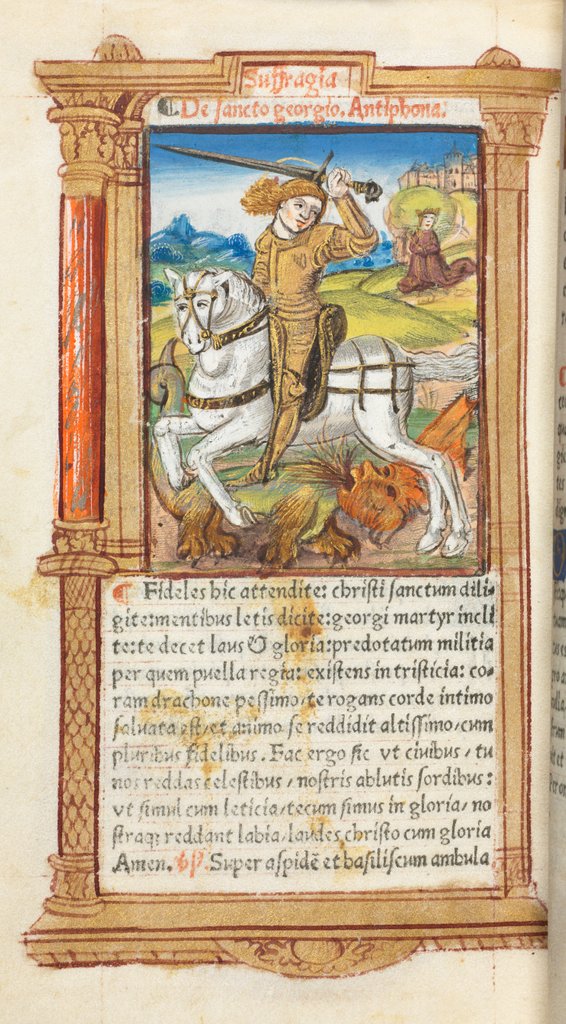 Suffragia
De sancto georgio. Antiphona.
Fideles hic attendite: christi sanctum dili
gite: mentibus letis dicite: georgi martyr incli
te: te decet laus & gloria: predotatum militia
per quem puella regia: existens in tristicia: co-
ram drachone pessimo/ te rogans corde intimo
saluata est/ et animo se reddidit altissimo/ cum
pluribus fidelibus. Fac ergo sic vt ciuibus/ tu
nos reddas celestibus/ nostris ablutis sordibus:
vt simul cum leticia/ tecum simus in gloria/ no
straqꝫ reddant labia/ laudes christo cum gloria
Amen. ℣. Super aspidē et basiliscum ambula